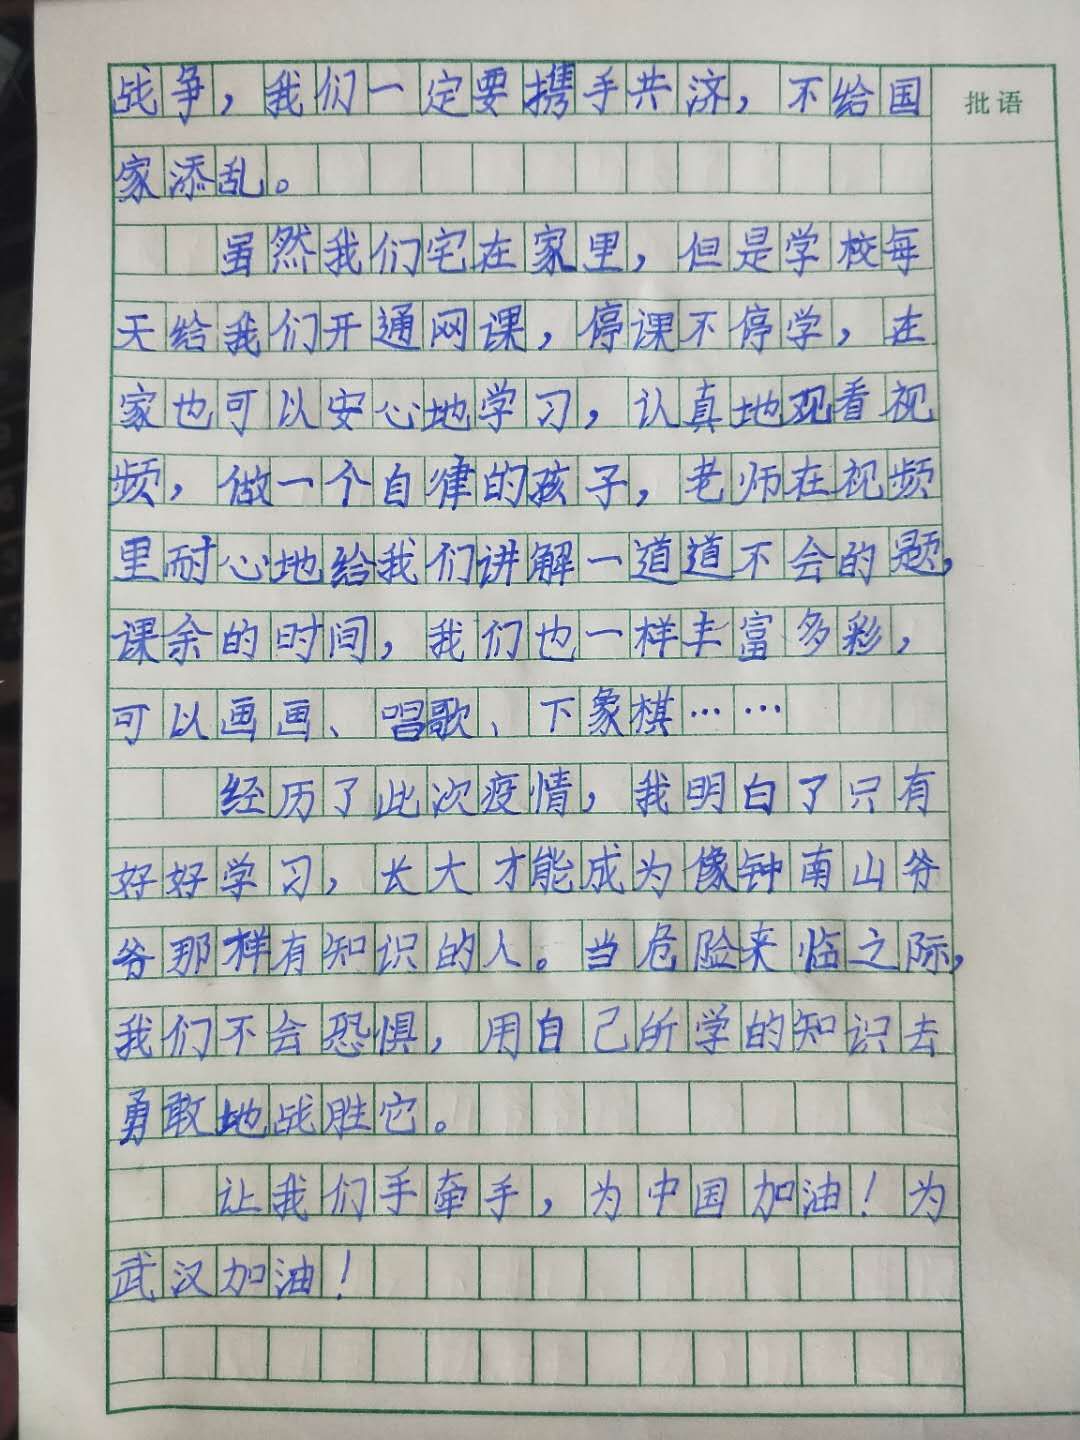 战争，我们一定要携手共济，不给国
批语
家添乱。
虽然我们宅在家里，但是学校每
天给我们开通网课，停课不停学，在
家也可以安心地学习，认真地观看视
频，做一个自律的孩子，老师在视频
里耐心地给我们讲解一道道不会的题，
课余的时间，我们也一样丰富多彩，
可以画画、唱歌、下象棋……
经历了此次疫情，我明白了只有
好好学习，长大才能成为像钟南山爷
爷那样有知识的人。当危险来临之际，
我们不会恐惧，用自己所学的知识去
勇敢地战胜它。
让我们手牵手，为中国加油！为
武汉加油！